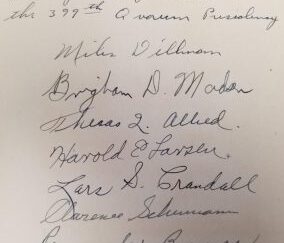 the 399th Quorum Presidency
Miles Dillman
Brigham D. Madsen
Allred.
Harold E Larsen.
Lars S. Crandall
Clarence Schumann